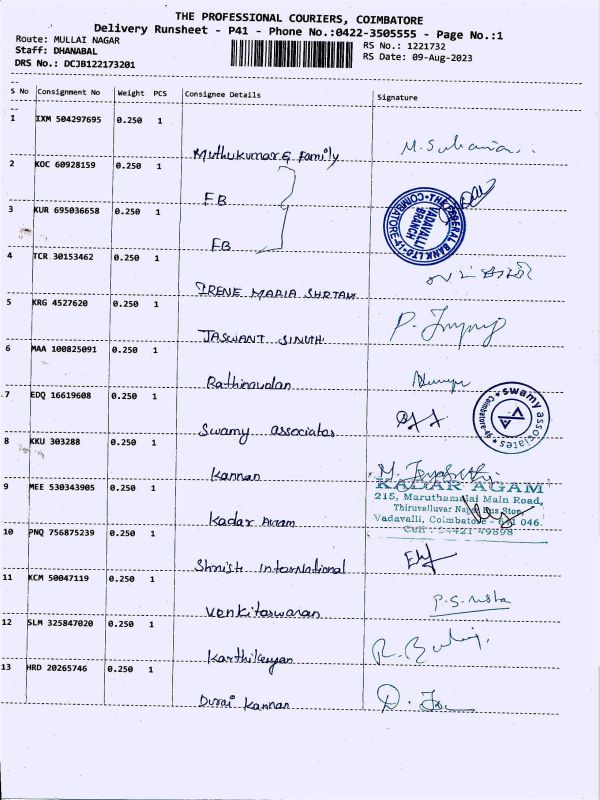 THE PROFESSIONAL COURIERS, COIMBATORE
Delivery Runsheet - P41 - Phone No.:0422-3505555 - Page No.:1
Route: MULLAI NAGAR
Staff: DHANABAL
DRS No.: DCJB122173201
RS No.: 1221732
RS Date: 09-Aug-2023
S No Consignment No Weight PCS Consignee Details Signature
1 IXM 504297695 0.250 1
Muthukumar & Family
2 KOC 60928159 0.250 1
FB
3 KUR 695036658 0.250 1
FB
THE FEDERAL BANK LTD
VADAVALLI
BRANCH
4 TCR 30153462 0.250 1
IRENE MARIA
5 KRG 4527620 0.250 1
JASWANT
6 MAA 100825091 0.250 1
Rathinavalan
7 EDQ 16619608 0.250 1
Swamy associates
swamy associates
8 KKU 303288 0.250 1
Kannan
9 MEE 530343905 0.250 1
Kadar
KADAR AGAM
215, Maruthamalai Main Road,
Thiruvalluvar Nagar Bus Stop,
Vadavalli, Coimbatore - 641 046.
Cell :
10 PNQ 756875239 0.250 1
International
11 KCM 50047119 0.250 1
Venkitaswaran
12 SLM 325847020 0.250 1
Karthikeyan
13 HRD 20265746 0.250 1
Durai Kannan